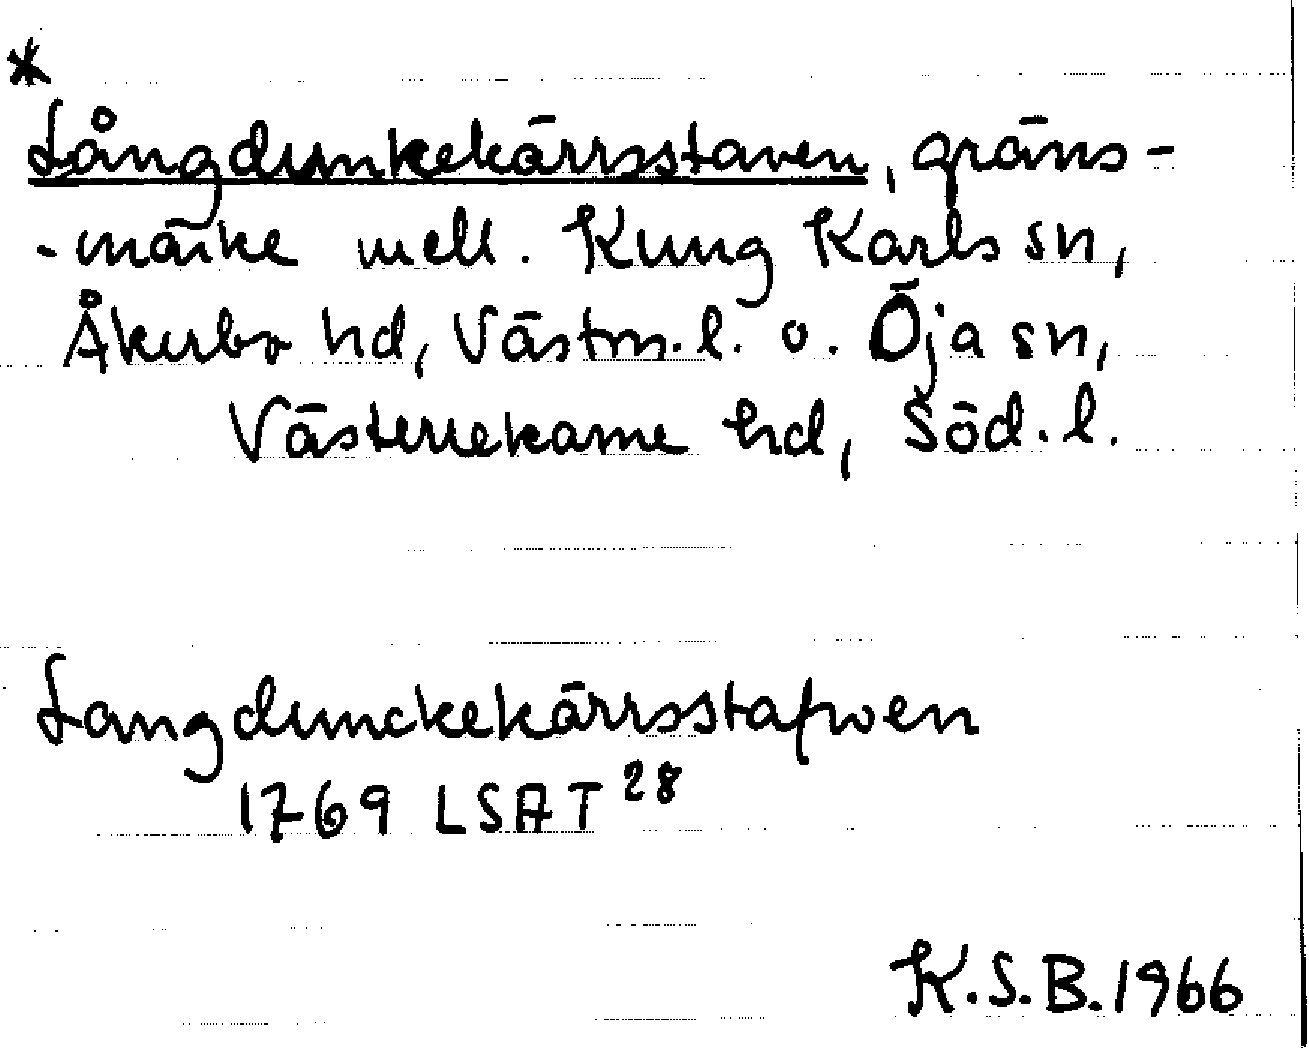 *
Långdunkekärrsstaven, gräns-
-märke mell. Kung Karls sn,
Åkerbo hd, Västm. l. o. Öja sn,
Västerrekarne hd, Söd. l.
Langdunckekärrsstafwen
1769 LSA T 28
K.S.B. 1966